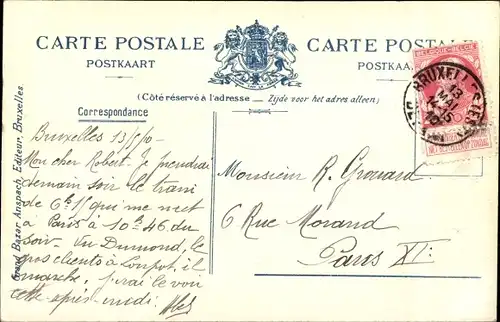 CARTE POSTALE
POSTKAART
CARTE POSTALE
POSTKAART
(Côté réservé à l'adresse — Zijde voor het adres alleen)
Correspondance
Grand Bazar Anspach, Editeur, Bruxelles
BELGIQUE-BELGIË
BRUXELLES
13
MAI
Bruxelles 13/5/10
Mon cher Robert, je prendrai
demain soir le train
de 6h 15 qui me met
à Paris à 10h 46 du
soir. Vu Dumond, le
gros clients à Loupot, il
marche. J'irai le voir
cette après-midi.
Monsieur R. Grouard
6 Rue Morand
Paris XI: